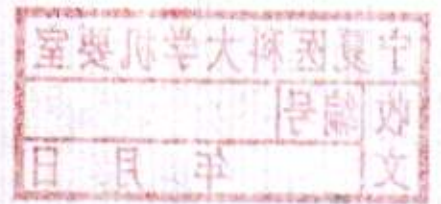 宁夏医科大学机要室
收文
编号
年 月 日